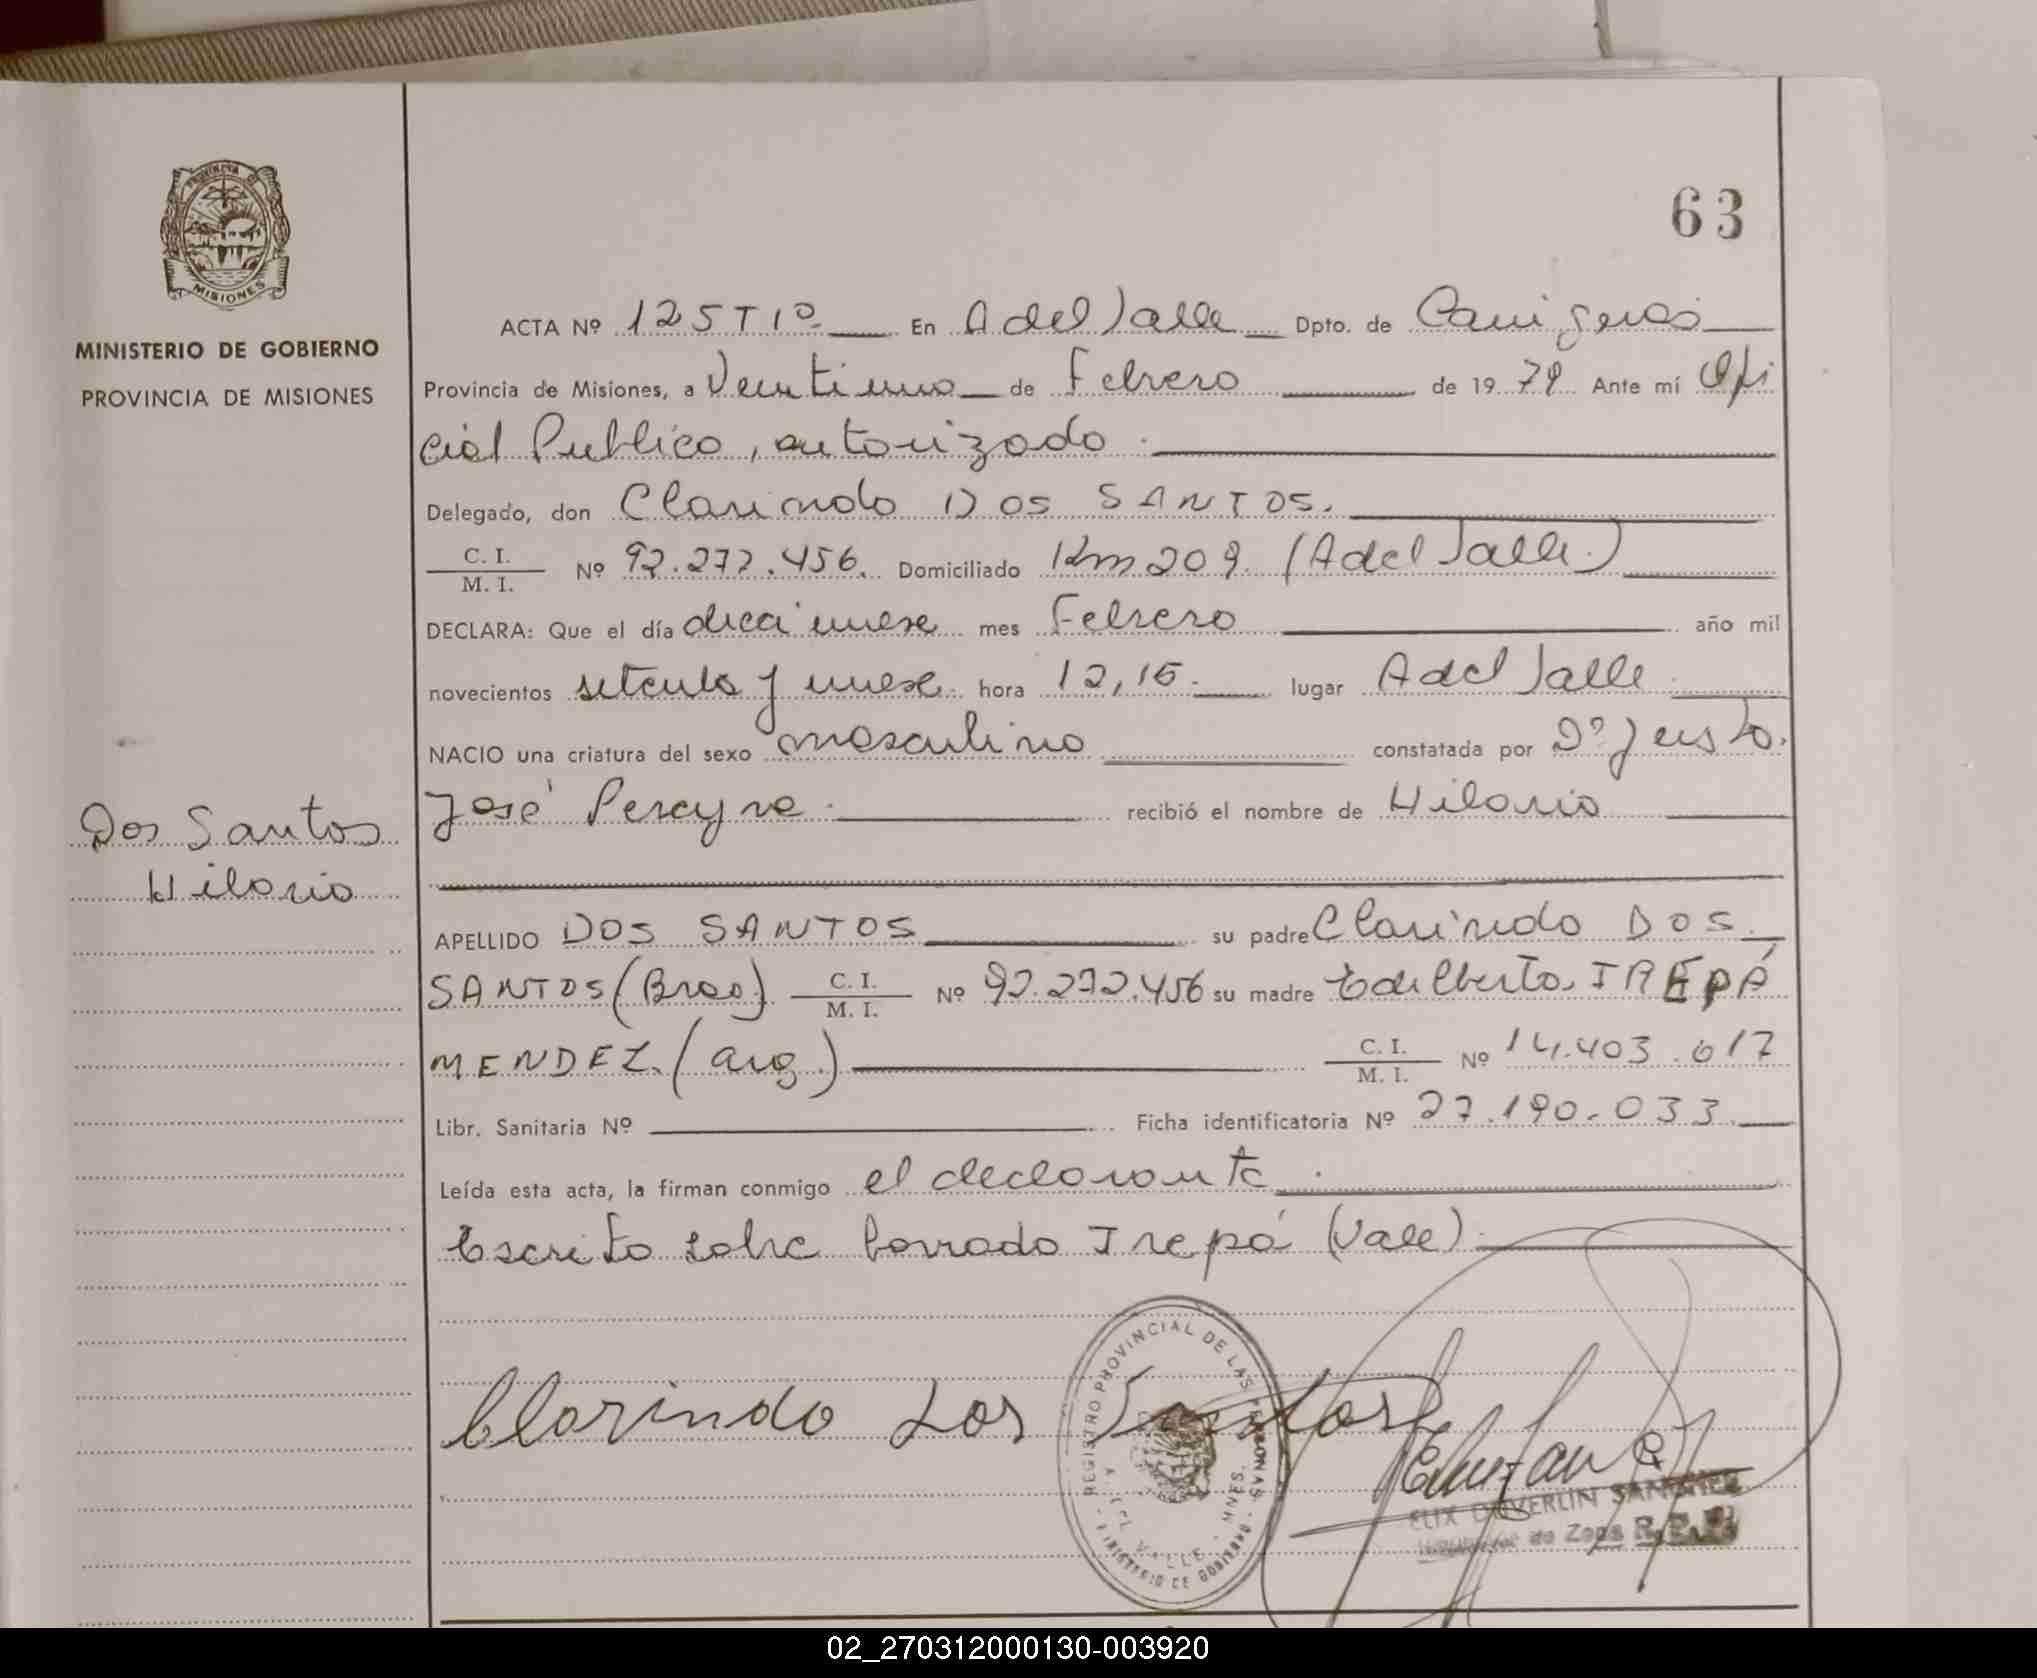 63
PROVINCIA DE
MISIONES
MINISTERIO DE GOBIERNO
PROVINCIA DE MISIONES
ACTA Nº 125 T 1º En A del Valle Dpto. de Cainguas
Provincia de Misiones, a Veintiuno de Febrero de 19 79 Ante mí Ofi
cial Publico, autorizado.
Delegado, don Clarindo DOS SANTOS.
C. I.
M. I. Nº 92.272.456. Domiciliado Km 209. (A del Valle.)
DECLARA: Que el día diecinueve mes Febrero año mil
novecientos setenta y nueve. hora 12,15. lugar A del Valle.
NACIO una criatura del sexo masculino constatada por Dº Justo.
José Pereyra. recibió el nombre de Hilario
Dos Santos
Hilario
APELLIDO DOS SANTOS su padre Clarindo DOS
SANTOS (Bras.) C. I.
M. I. Nº 92.272.456 su madre Edilberto. IREPÁ
MENDEZ. (arg.) C. I.
M. I. Nº 14.403.017
Libr. Sanitaria Nº Ficha identificatoria Nº 27.190.033
Leída esta acta, la firman conmigo el declarante.
Escrito sobre borrado Irepá (Vale).
Clorindo Dos Santos
REGISTRO PROVINCIAL DE LAS PERSONAS
MINISTERIO DE GOBIERNO
A. DEL VALLE - MNES.
ELIX DUVERLIN SANCHEZ
de Zona R.P.P.
02_270312000130-003920